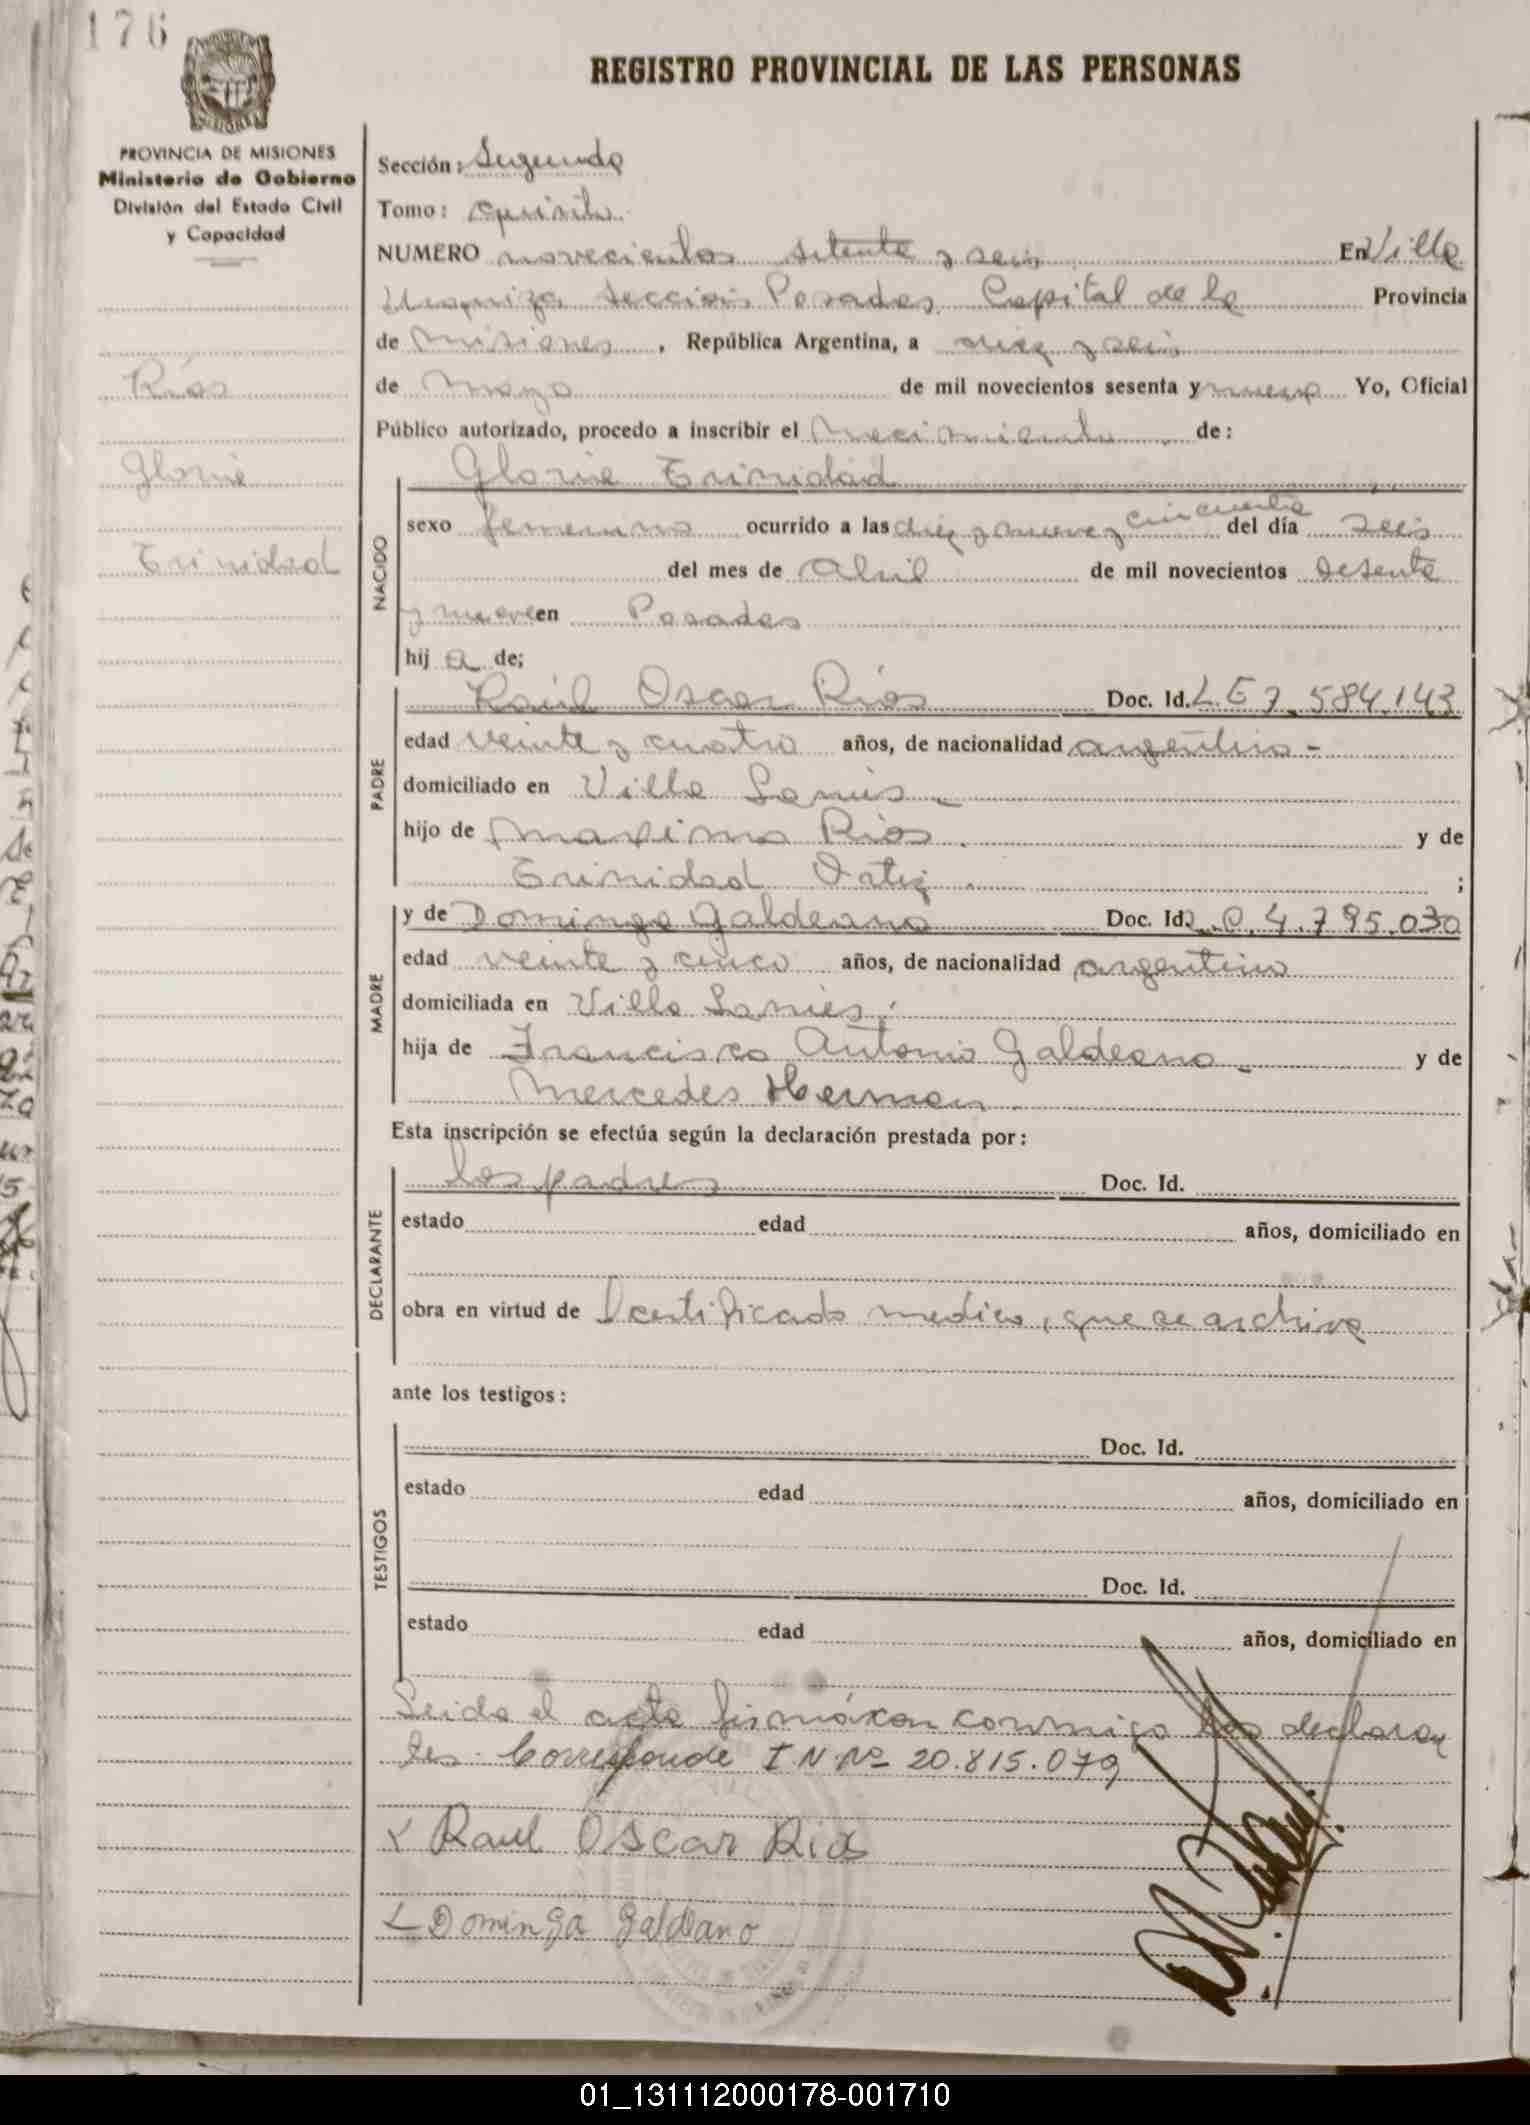 176
REGISTRO PROVINCIAL DE LAS PERSONAS
PROVINCIA DE MISIONES
Ministerio de Gobierno
División del Estado Civil
y Capacidad
Ríos
Gloria
Trinidad
Sección: Segunda
Tomo: quinto
NUMERO novecientos setenta y seis En Villa
Urquiza Sección Posadas Capital de la Provincia
de Misiones, República Argentina, a diez y seis
de Mayo de mil novecientos sesenta y nueve Yo, Oficial
Público autorizado, procedo a inscribir el Nacimiento de:
Gloria Trinidad
NACIDO
sexo femenino ocurrido a las diez y nueve y cincuenta del día seis
del mes de Abril de mil novecientos sesenta
y nueve en Posadas
hij a de;
PADRE
Raúl Oscar Ríos Doc. Id. L E 7.584.143
edad veinte y cuatro años, de nacionalidad argentino -
domiciliado en Villa Lanús -
hijo de Maximo Ríos y de
Trinidad Ortiz ;
MADRE
y de Dominga Galdeano Doc. Id. L.C 4.795.030
edad veinte y cinco años, de nacionalidad argentina
domiciliada en Villa Lanús.
hija de Francisco Antonio Galdeano - y de
Mercedes Herman
Esta inscripción se efectúa según la declaración prestada por:
DECLARANTE
los padres Doc. Id.
estado edad años, domiciliado en
obra en virtud de certificado medico, que se archiva
ante los testigos:
TESTIGOS
Doc. Id.
estado edad años, domiciliado en
Doc. Id.
estado edad años, domiciliado en
Leida el acta firmáron conmigo los declaran
tes. Corresponde I N. Nº 20.815.079
Raul Oscar Rios
Dominga Galdeano
01_131112000178-001710